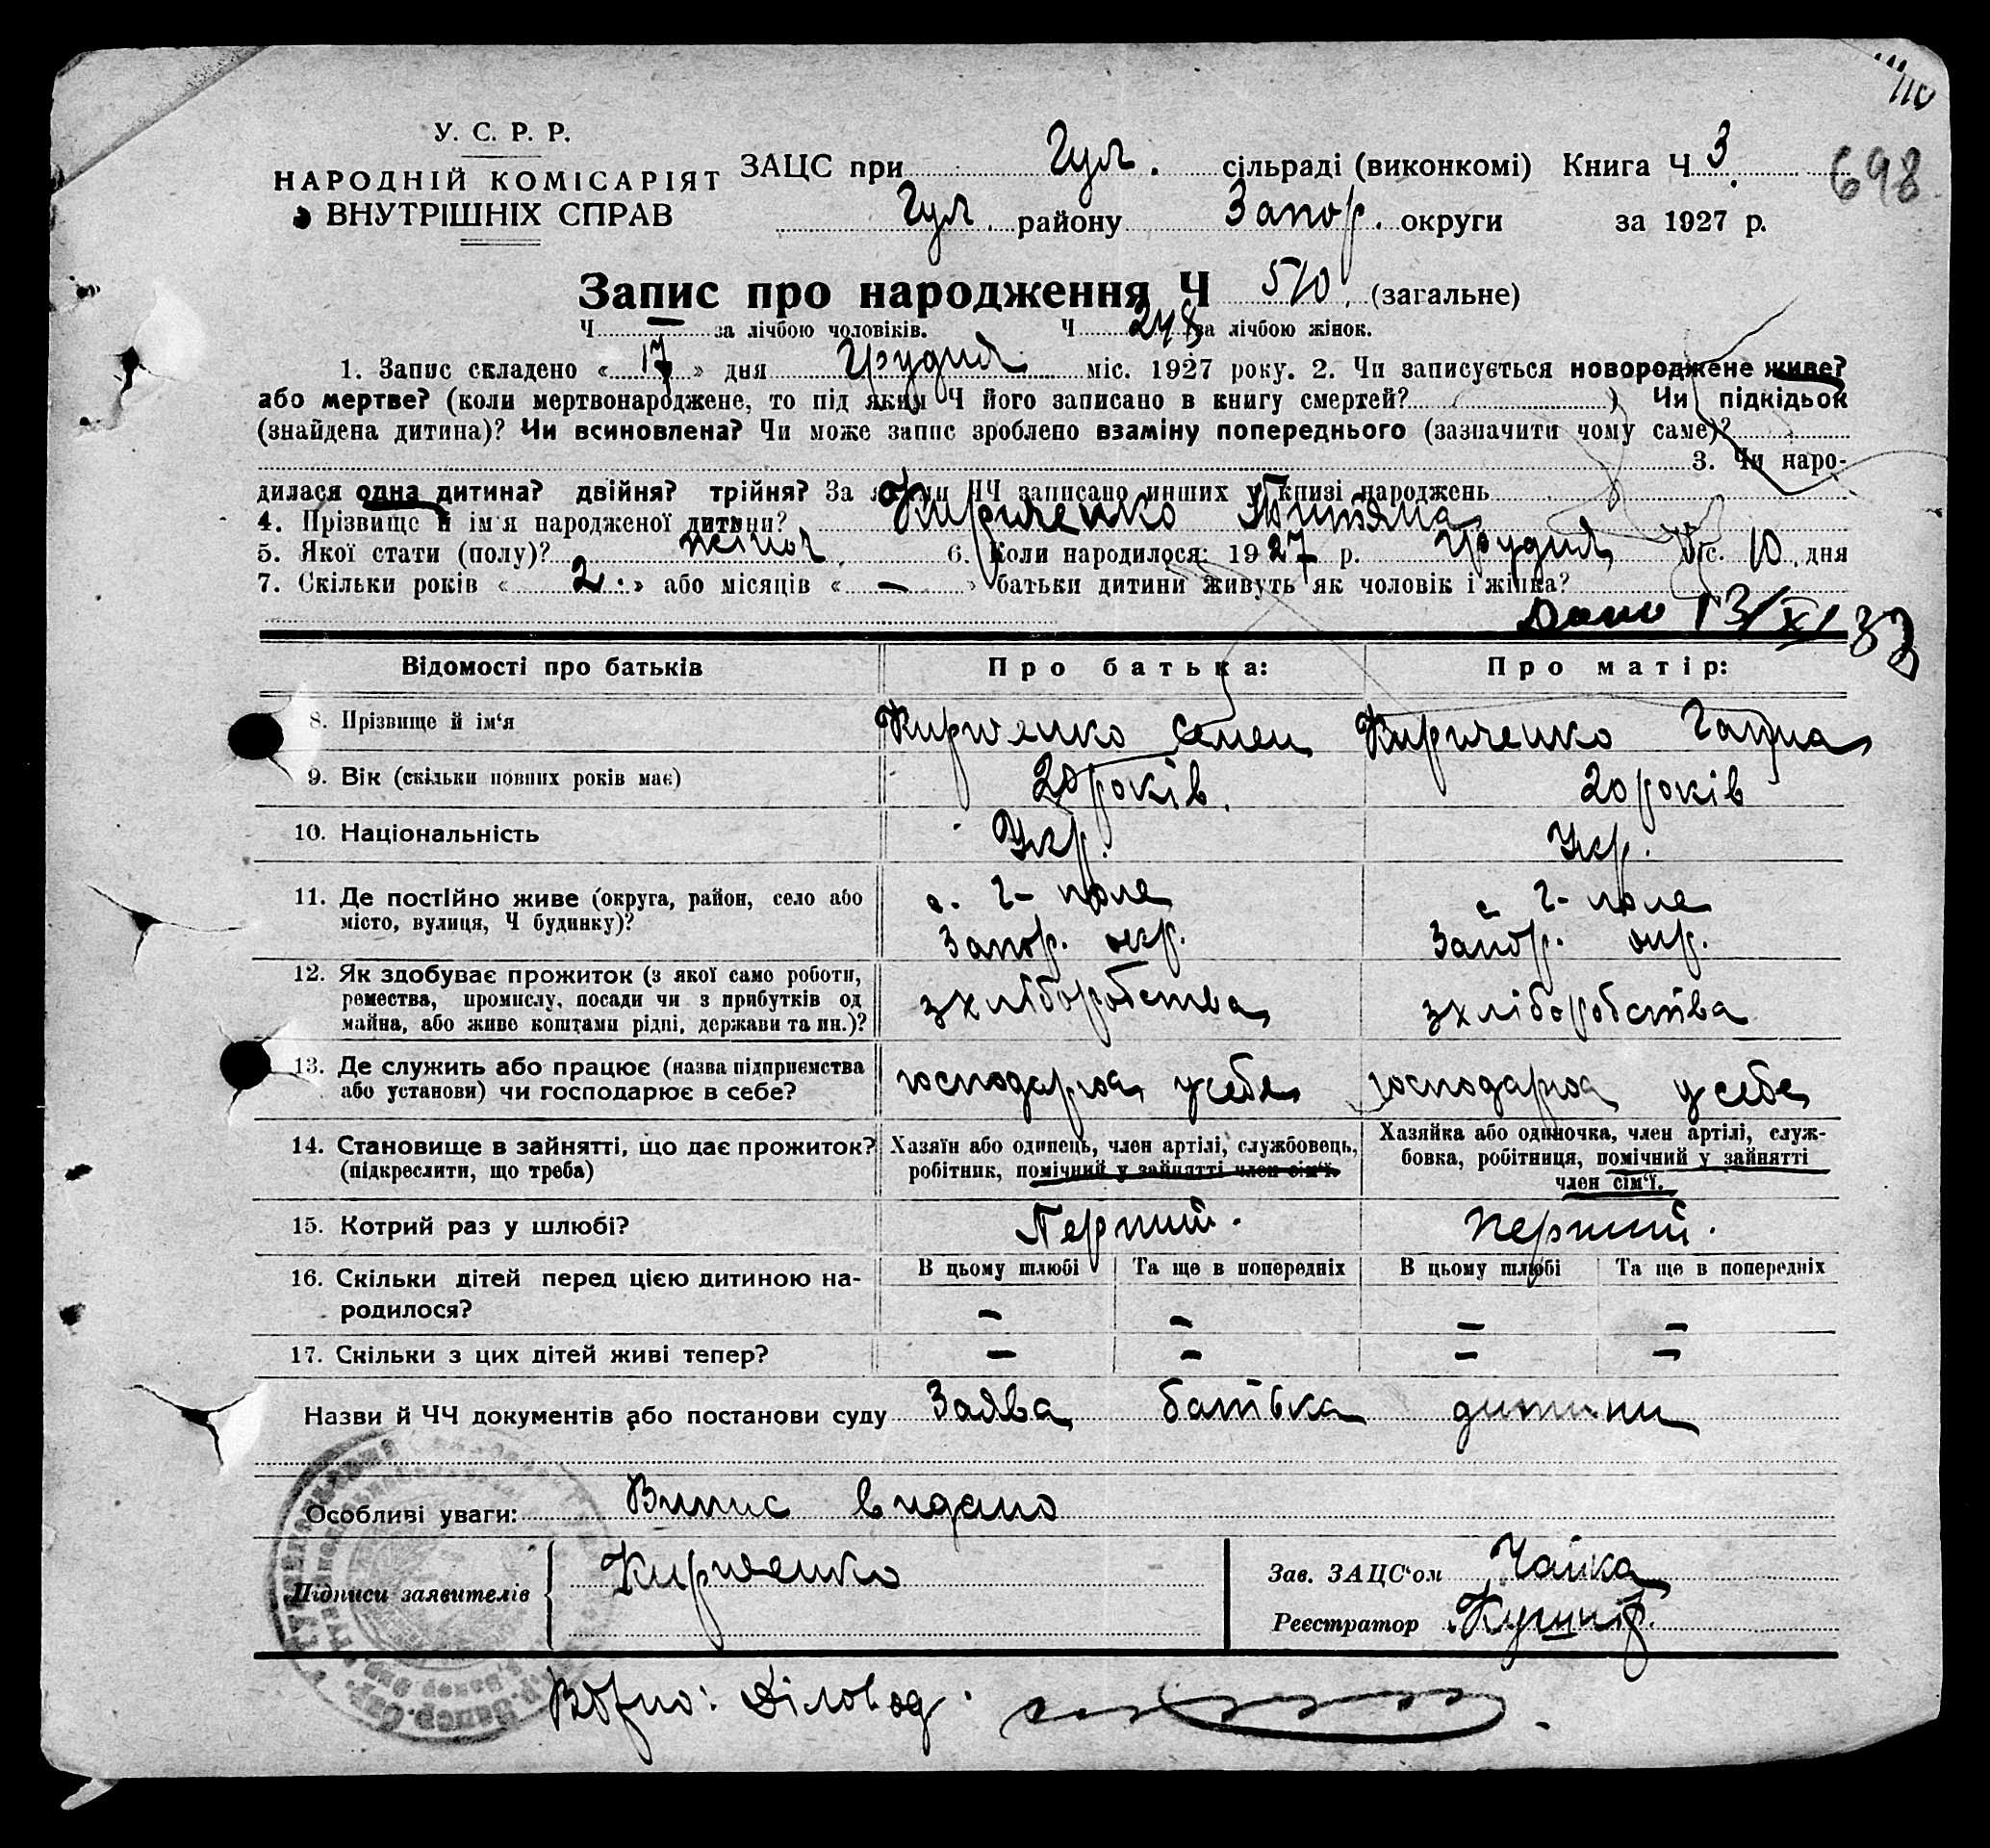 110
У. С. Р. Р.
НАРОДНІЙ КОМІСАРІЯТ
ВНУТРІШНІХ СПРАВ
ЗАЦС при Гул. сільраді (виконкомі) Книга Ч 3
698
Гул. району Запор. округи за 1927 р.
Запис про народження Ч 510. (загальне)
Ч — за лічбою чоловіків. Ч 248 за лічбою жінок.
1. Запис складено «17» дня Грудня міс. 1927 року. 2. Чи записується новороджене живе?
або мертве? (коли мертвонароджене, то під яким Ч його записано в книгу смертей?) Чи підкідьок
(знайдена дитина)? Чи всиновлена? Чи може запис зроблено взаміну попереднього (зазначити чому саме)?
3. Чи наро-
дилася одна дитина? двійня? трійня? За якими ЧЧ записано инших у книзі народжень
4. Прізвище й ім'я народженої дитини? Кириченко Тетяна
5. Якої стати (полу)? жіноч. 6. Коли народилося: 1927 р. Грудня міс. 10 дня
7. Скільки років «2» або місяців «—» батьки дитини живуть як чоловік і жінка?
Дано 13/XI 32
Відомості про батьків Про батька: Про матір:
8. Прізвище й ім'я Кириченко Семен Кириченко Ганна
9. Вік (скільки повних років має) 20 років. 20 років
10. Національність Укр. Укр.
11. Де постійно живе (округа, район, село або
місто, вулиця, Ч будинку)?
с. Г-поле с Г-поле
Запор. окр. Запор. окр.
12. Як здобуває прожиток (з якої само роботи,
ремества, промислу, посади чи з прибутків од
майна, або живе коштами рідні, держави та ин.)?
з хліборобства з хліборобства
13. Де служить або працює (назва підприємства
або установи) чи господарює в себе?
господарює у себе господарює у себе
14. Становище в зайнятті, що дає прожиток?
(підкреслити, що треба)
Хазяїн або одинець, член артілі, службовець,
робітник, помічний у зайнятті член сім'ї.
Хазяйка або одиночка, член артілі, служ-
бовка, робітниця, помічний у зайнятті
член сім'ї.
15. Котрий раз у шлюбі? Перший. перший.
16. Скільки дітей перед цією дитиною на-
родилося?
В цьому шлюбі Та ще в попередніх В цьому шлюбі Та ще в попередніх
— — — —
17. Скільки з цих дітей живі тепер? — — — —
Назви й ЧЧ документів або постанови суду Заява батька дитини
Особливі уваги: Випис видано
Підписи заявителів Кириченко
Зав. ЗАЦС'ом Чайка
Реєстратор Кушнір.
Вірно: Діловод.